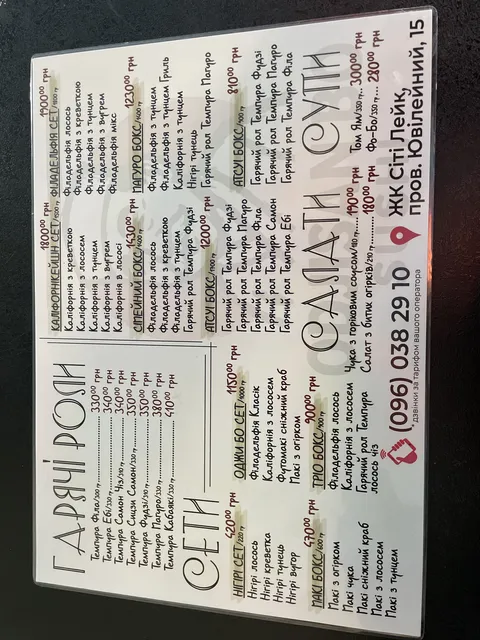 ГАРЯЧІ РОЛИ
Темпура Філа/330 гр 330⁰⁰ грн
Темпура Ебі/330 гр 340⁰⁰ грн
Темпура Самон Чіз/330 гр 340⁰⁰ грн
Темпура Смузі Самон/330 гр 350⁰⁰ грн
Темпура Фудзі/330 гр 350⁰⁰ грн
Темпура Магуро/330 гр 380⁰⁰ грн
Темпура Кабаякі/330 гр 410⁰⁰ грн
КАЛІФОРНІКЕЙШН СЕТ 1800⁰⁰ грн
Каліфорнія з креветкою
Каліфорнія з лососем
Каліфорнія з тунцем
Каліфорнія з вугрем
Каліфорнія в лососі
ФІЛАДЕЛЬФІЯ СЕТ 1900⁰⁰ грн
Філадельфія лосось
Філадельфія з креветкою
Філадельфія з тунцем
Філадельфія з вугрем
Філадельфія мікс
СІМЕЙНИЙ БОКС 1430⁰⁰ грн
Філадельфія лосось
Філадельфія з креветкою
Філадельфія з тунцем
Гарячий рол Темпура Фудзі
МАГУРО БОКС 1230⁰⁰ грн
Філадельфія з тунцем
Філадельфія з тунцем Гриль
Каліфорнія з тунцем
Нігірі тунець
Гарячий рол Темпура Магуро
СЕТИ
НІГІРІ СЕТ 420⁰⁰ грн
Нігірі лосось
Нігірі креветка
Нігірі тунець
Нігірі вугор
ОДЖИ БО СЕТ 1150⁰⁰ грн
Філадельфія Класік
Каліфорнія з лососем
Футомакі сніжний краб
Макі з огірком
АТСУІ БОКС 1200⁰⁰ грн
Гарячий рол Темпура Фудзі
Гарячий рол Темпура Магуро
Гарячий рол Темпура Філа
Гарячий рол Темпура Самон
Гарячий рол Темпура Ебі
АТСУІ БОКС 810⁰⁰ грн
Гарячий рол Темпура Фудзі
Гарячий рол Темпура Магуро
Гарячий рол Темпура Філа
МАКІ БОКС 470⁰⁰ грн
Макі з огірком
Макі чука
Макі сніжний краб
Макі з лососем
Макі з тунцем
ТРІО БОКС 900⁰⁰ грн
Філадельфія лосось
Каліфорнія з лососем
Гарячий рол Темпура
лосось чіз
САЛАТИ СУПИ
Чука з горіховим соусом 190⁰⁰ грн
Салат з битих огірків/210 гр 180⁰⁰ грн
Том Ям/350 гр 300⁰⁰ грн
Фо-Бо/350 гр 280⁰⁰ грн
(096) 038 29 10
*дзвінки за тарифом вашого оператора
ЖК Сіті Лейк,
пров. Ювілейний, 15